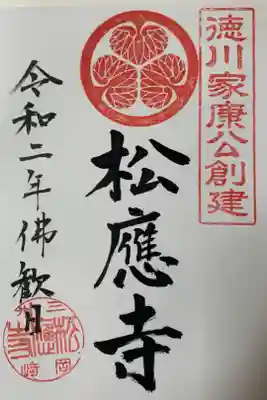 徳川家康公創建
松應寺
令和二年佛歓日
三州岡崎松應寺